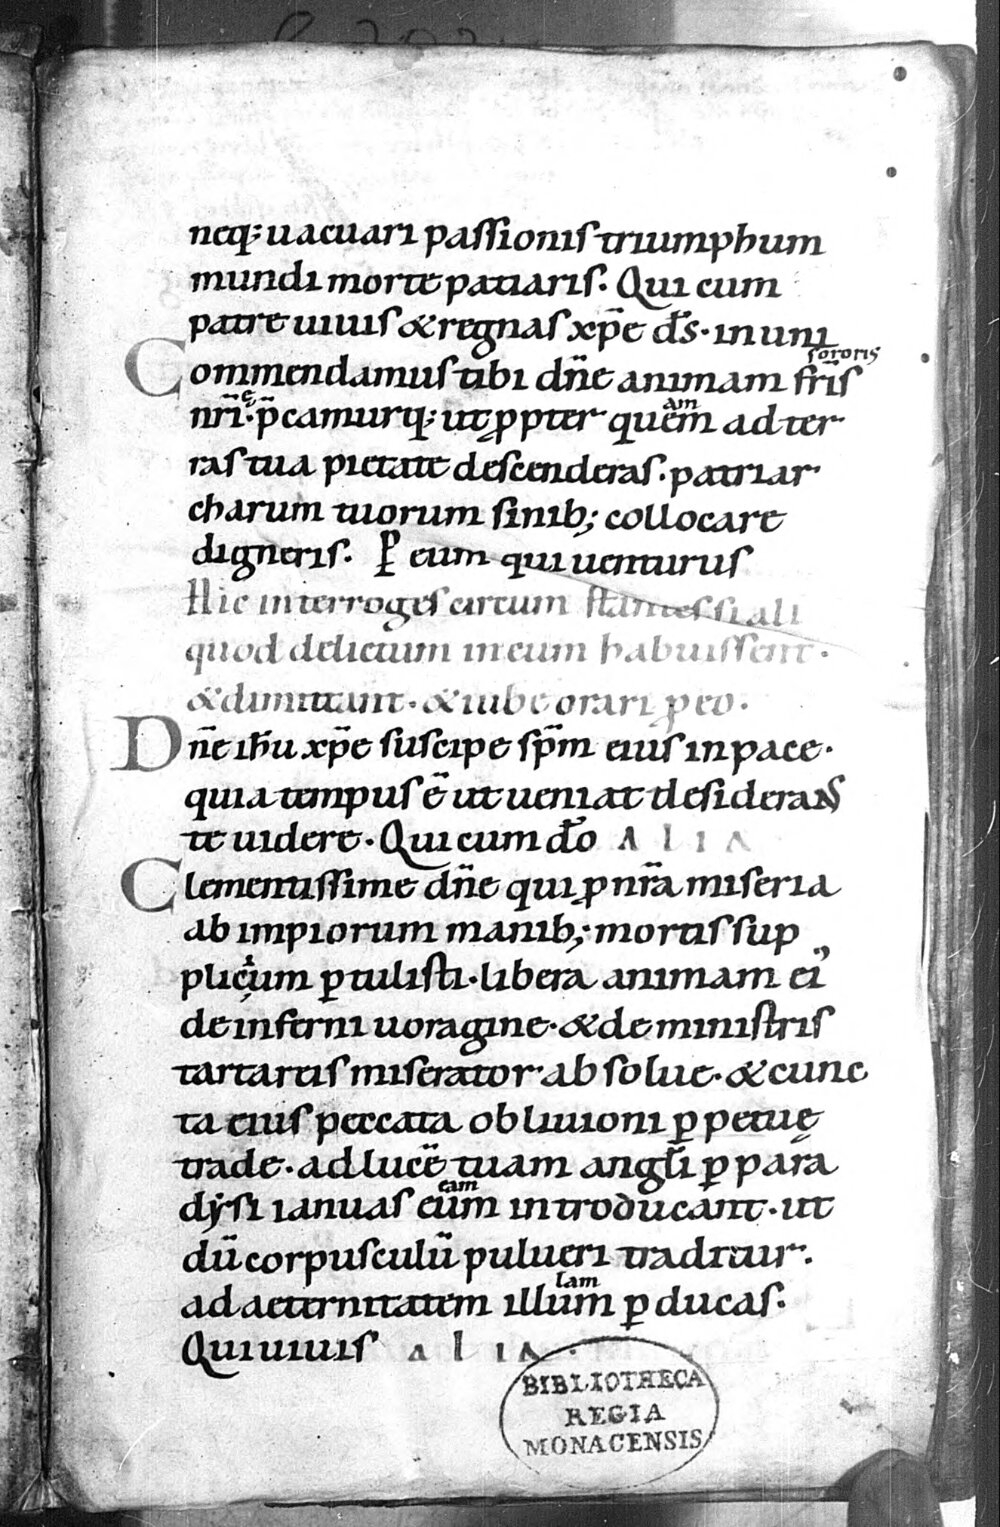 neq; uacuari passionis triumphum
mundi morte patiaris. Qui cum
patre uiuis & regnas xp̄e d̄s. in uni
sororis
Commendamus tibi dn̄e animam fr̄is
e am
nr̄i. p̄camurq; ut ꝓpter quem ad ter
ras tua pietate descenderas. patriar
charum tuorum sinib; collocare
digneris. P̲ eum qui uenturus
Hic interroges circum stantes si ali
quod delictum in eum habuissent.
& dimittant. & iube orari ꝓ eo.
Dn̄e ih̄u xp̄e suscipe sp̄m eius in pace.
quia tempus ē ut ueniat desiderans
te uidere. Qui cum d̄o ALIA
Clementissime dn̄e qui ꝓ nr̄a miseria
ab impiorum manib; mortis sup
plicium ꝑtulisti. libera animam ei᾿
de inferni uoragine. & de ministris
tartareis miserator absolue. & cunc
ta eius peccata obliuioni ꝑpetuę
trade. ad lucē tuam angl̄i ꝑ para
dysi ianuas eum introducant. ut
eam
dū corpusculū pulueri traditur.
lam
ad aeternitatem illum ꝑducas.
Qui uiuis alia.
BIBLIOTHECA
REGIA
MONACENSIS